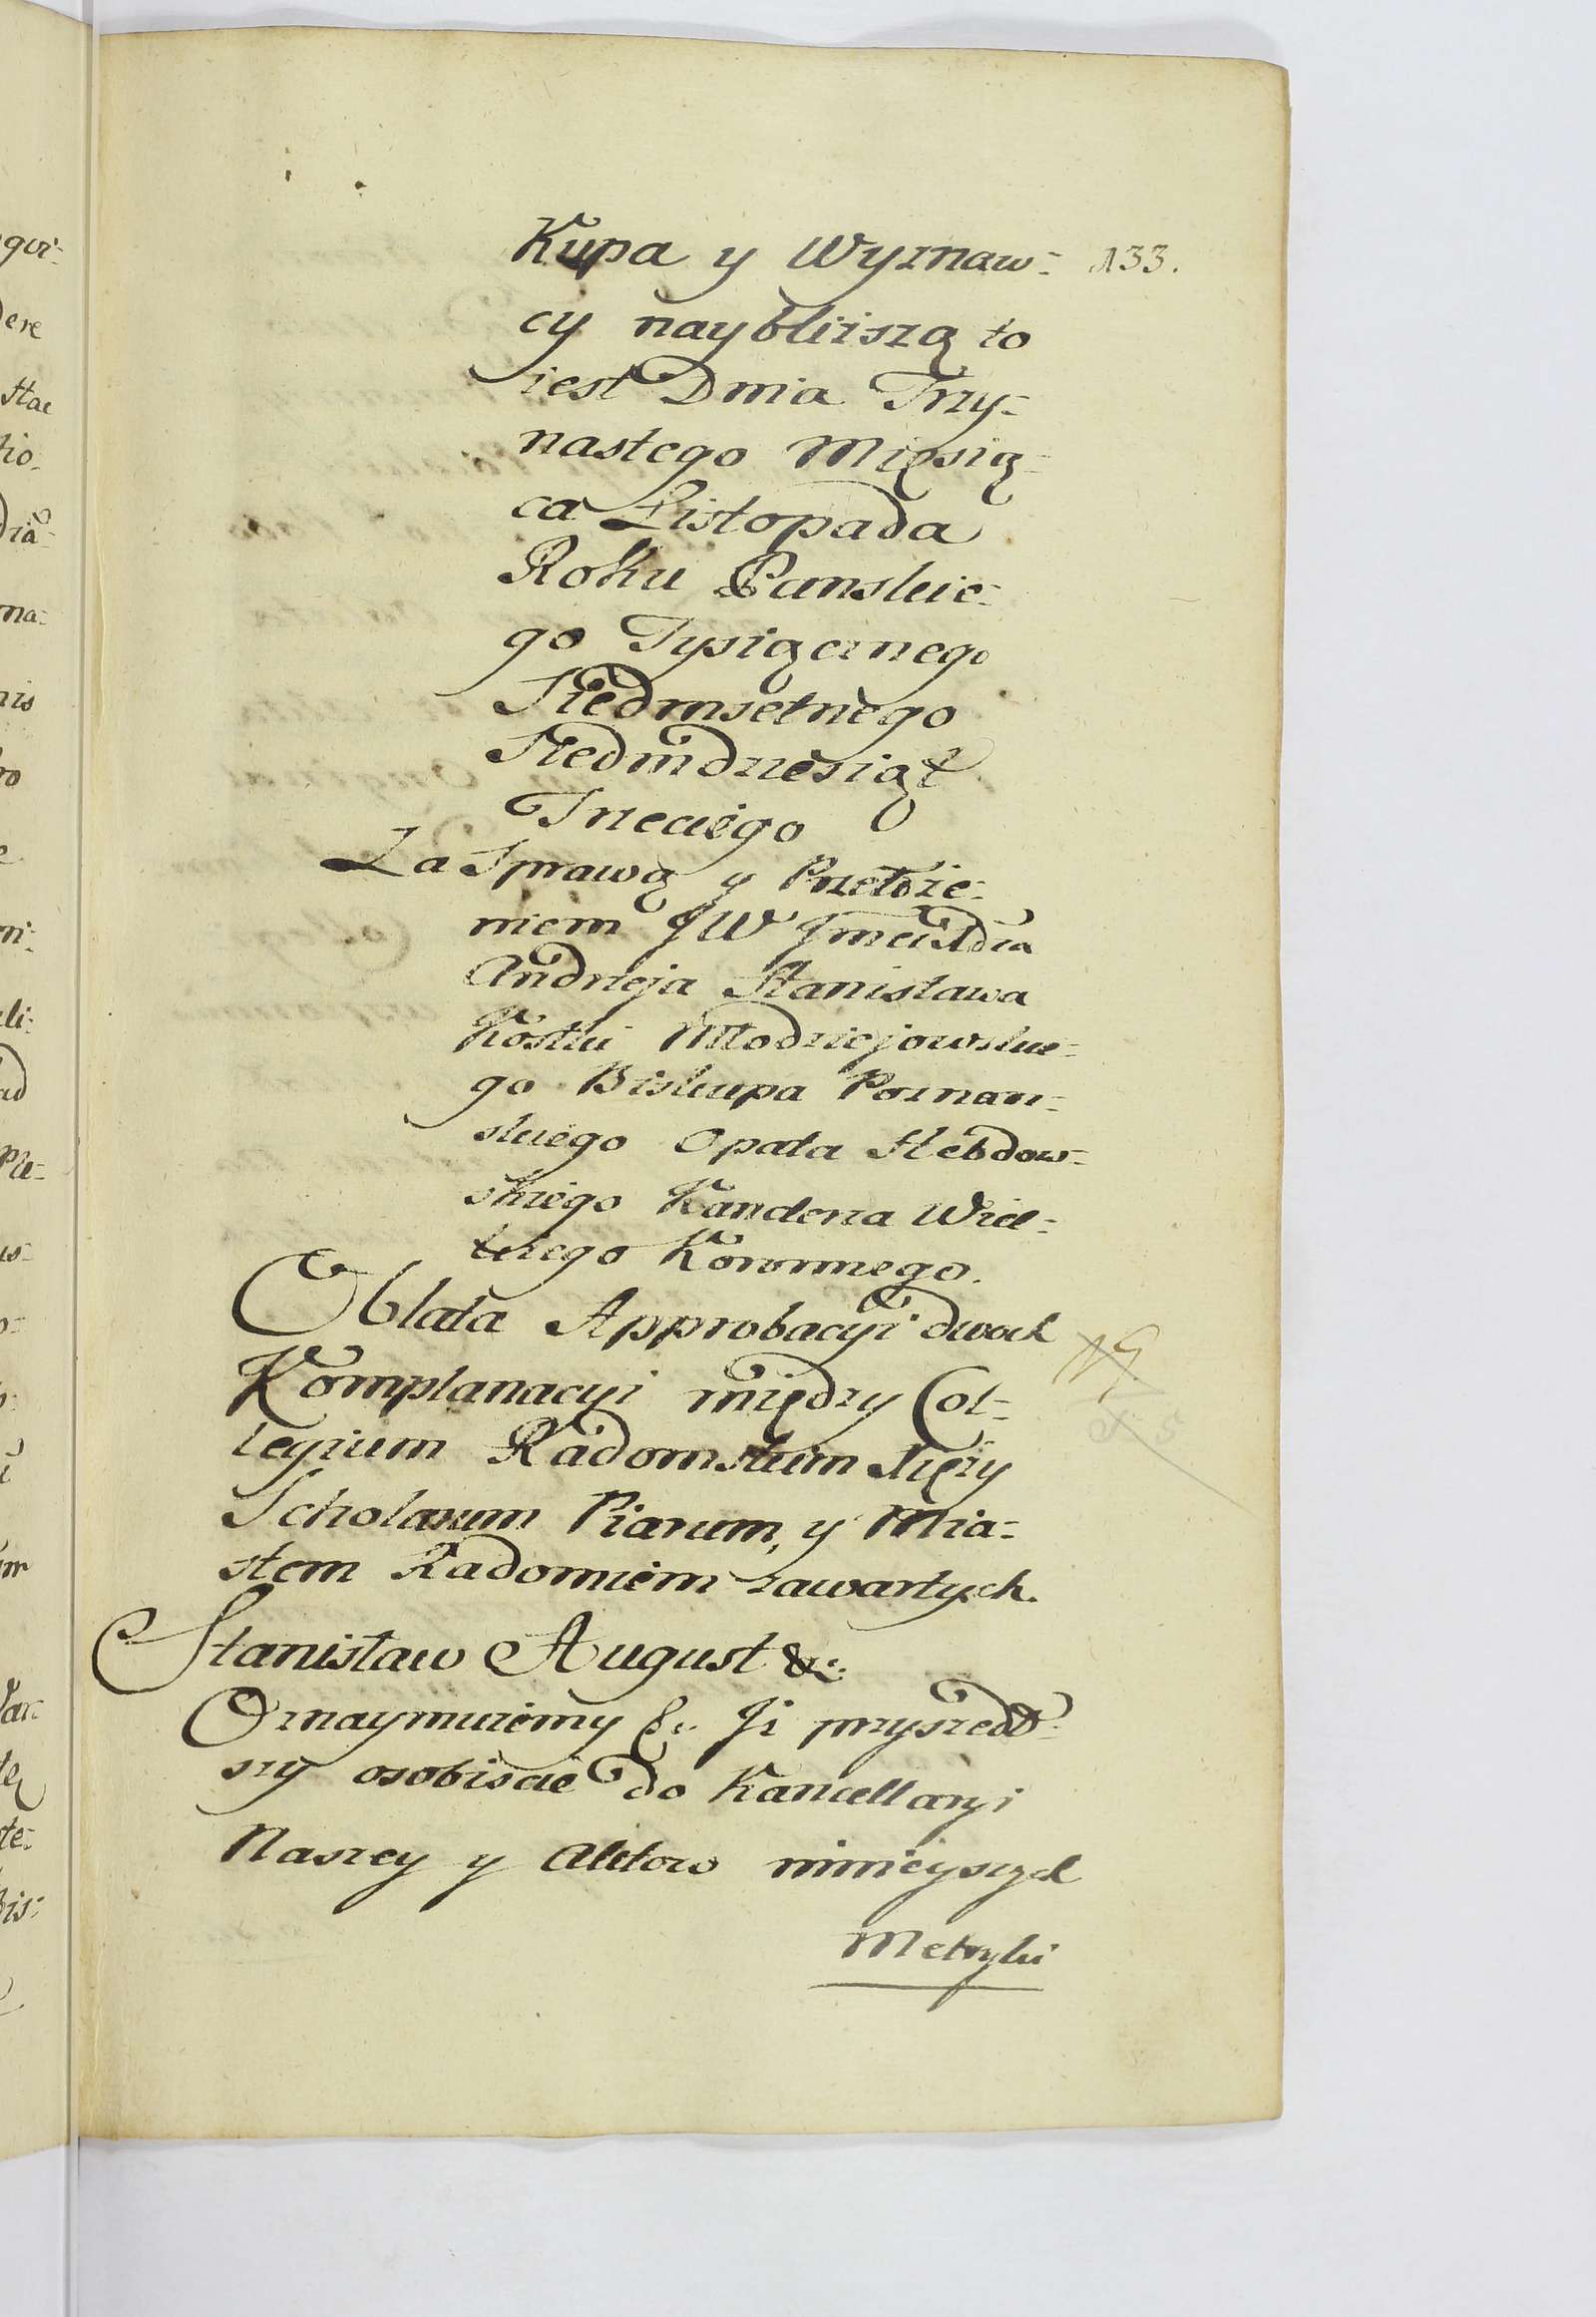 133.
Kupa y Wyznaw=
cy naybliższą to
iest Dnia Trzy=
nastego Miesią=
ca Listopada
Roku Panskie=
go Tysiącznego
Siedmsetnego
Siedmdziesiąt
Trzeciego
Za Sprawą y Przełoże=
niem JW Jmci Xdza
Andrzeja Stanisława
Kostki Młodziejowskie=
go Biskupa Poznan=
skiego Opata Hebdow=
skiego Kanclerza Wiel=
kiego Koronnego.
Oblata Approbacyi dwoch
Komplanacyi między Col=
legium Radomskim Xięży
Scholarum Piarum, y Mia=
stem Radomiem zawartych.
Stanisław August &c:
Oznaymuiemy &c. Jż przyszedł=
szy osobiscie do Kancellaryi
Naszey y Aktow ninieyszych
Metryki